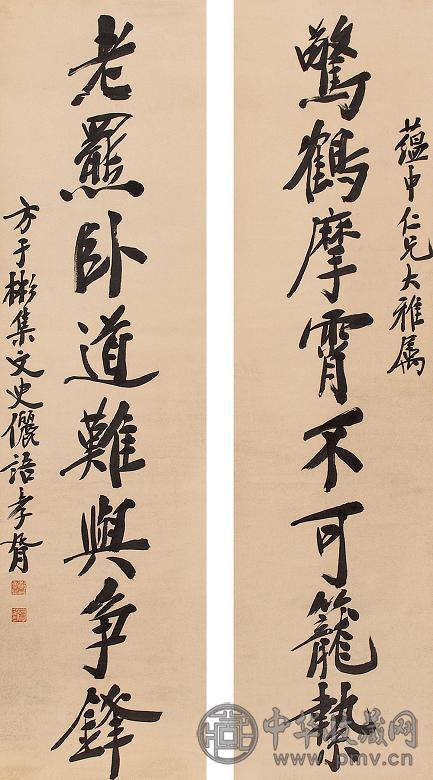 蕴申仁兄大雅属
驚鶴摩霄不可籠縶
老羆卧道難與爭鋒
方于彬集文史儷語孝胥
中华收藏网
www.pmv.cn